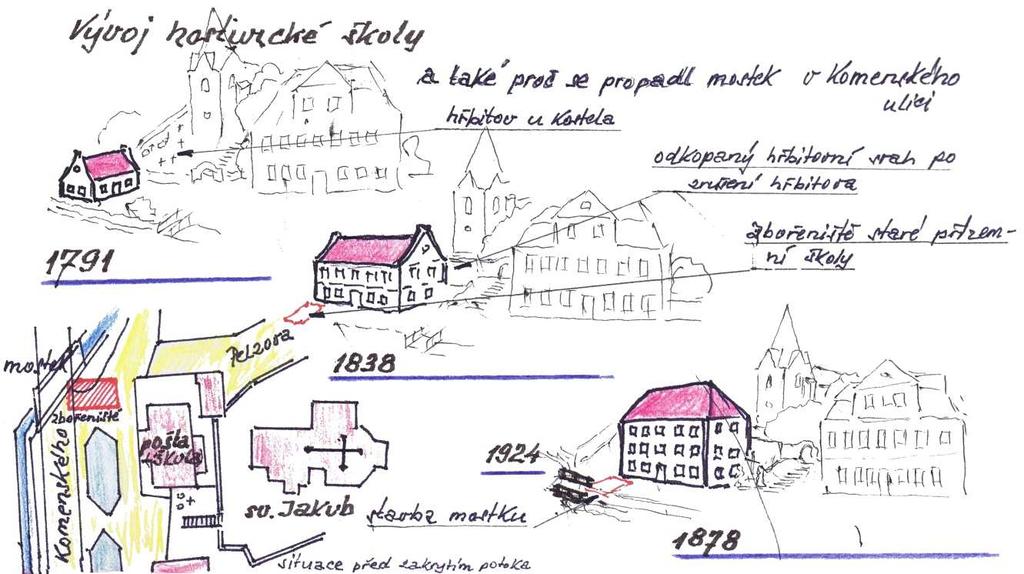 Vývoj hostivické školy
a také proč se propadl mostek v Komenského
ulici
hřbitov u kostela
odkopaný hřbitovní svah po
zrušení hřbitova
zbořeniště staré přízem-
ní školy
1791
1838
Pelzova
mostek
zbořeniště
pošta
škola
Komenského
sv. Jakub
1924
stavba mostku
1878
situace před zakrytím potoka